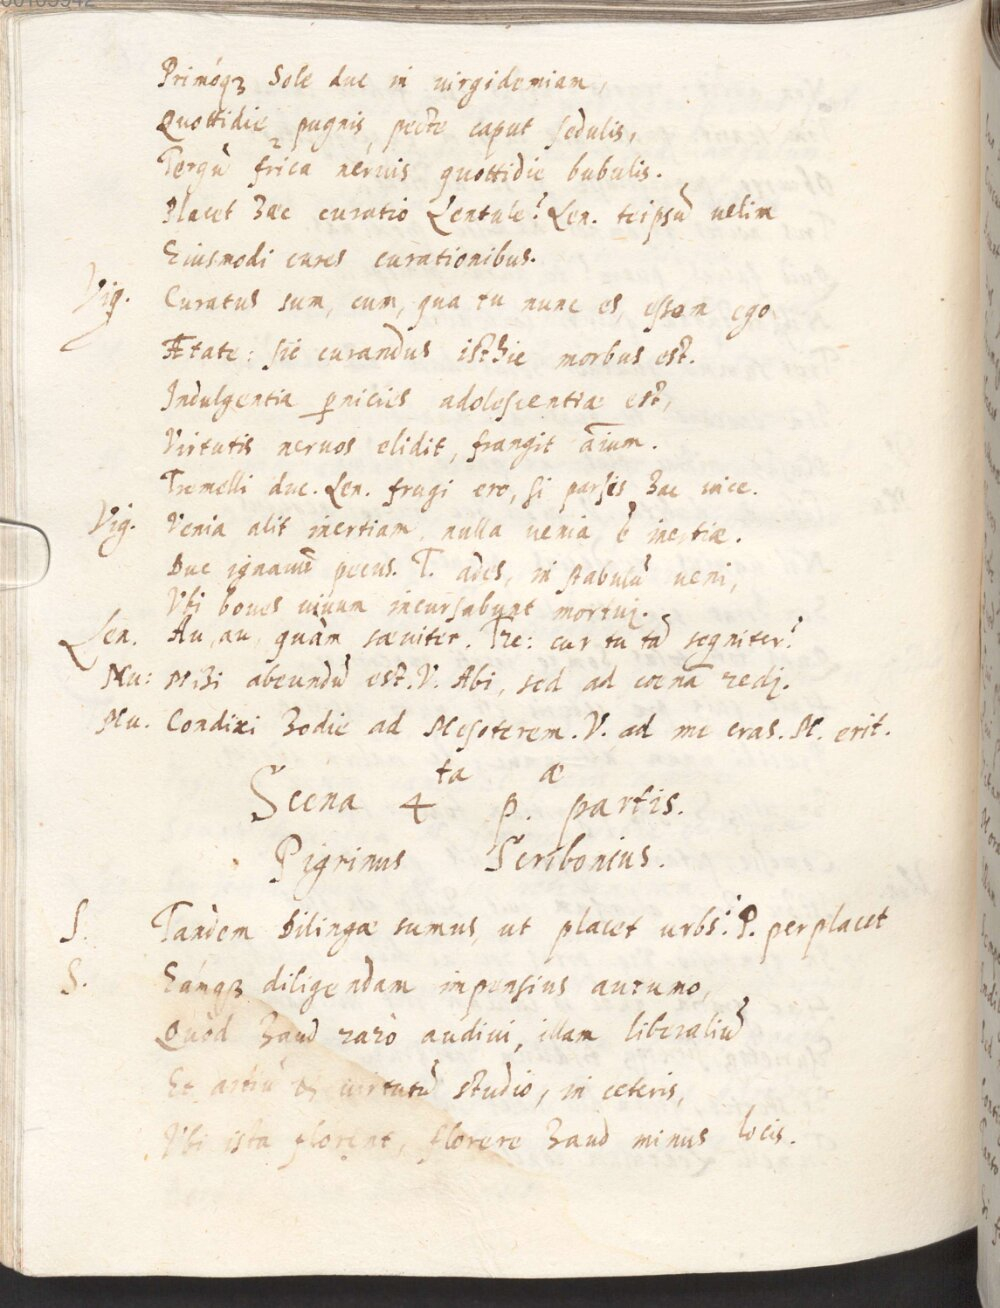 Primóqꝫ Sole duc in virgidemiam,
Quottidie pugnis pecte caput sedulis,
Tergũ frica neruis quottidie bubulis.
Placet hæc curatio Lentule? Len. teipsũ uelim
Eiusmodi cures curationibus.
Vig. Curatus sum, cum, qua tu nunc es, essem ego
Ætate: sic curandus isthic morbus est.
Indulgentia ꝑnicies adolescentiæ est,
Virtutis neruos elidit, frangit aĩum.
Tremelli duc. Len. frugi ero, si parsis hac uice.
Vig. Venia alit inertiam, nulla uenia ẽ inertiæ.
Duc ignauũ pecus. T. ades, in stabulũ ueni,
Vbi boues uiuum incursabunt mortui.
Len. Au, au, quàm sæuiter. Tre: cur tu tã segniter?
Mu: Mihi abeundũ est. V. Abi, sed ad cœnã redj.
Mu. Condixi hodie ad Mesoterem. V. ad me cras. M. erit.
Scena 4ta p.æ partis.
Pigrinus Scribonius.
S. Tandem Dilingæ sumus, ut placet urbs? P. perplacet
S. Eámqꝫ diligendam impensius autumo,
Quòd haud rarò audiui, illam liberaliũ
Et artiũ & uirtutũ studio, in ceteris,
Vbi ista florent, florere haud minus locis.